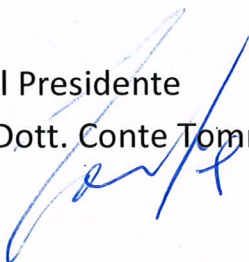 l Presidente
Dott. Conte Tomm